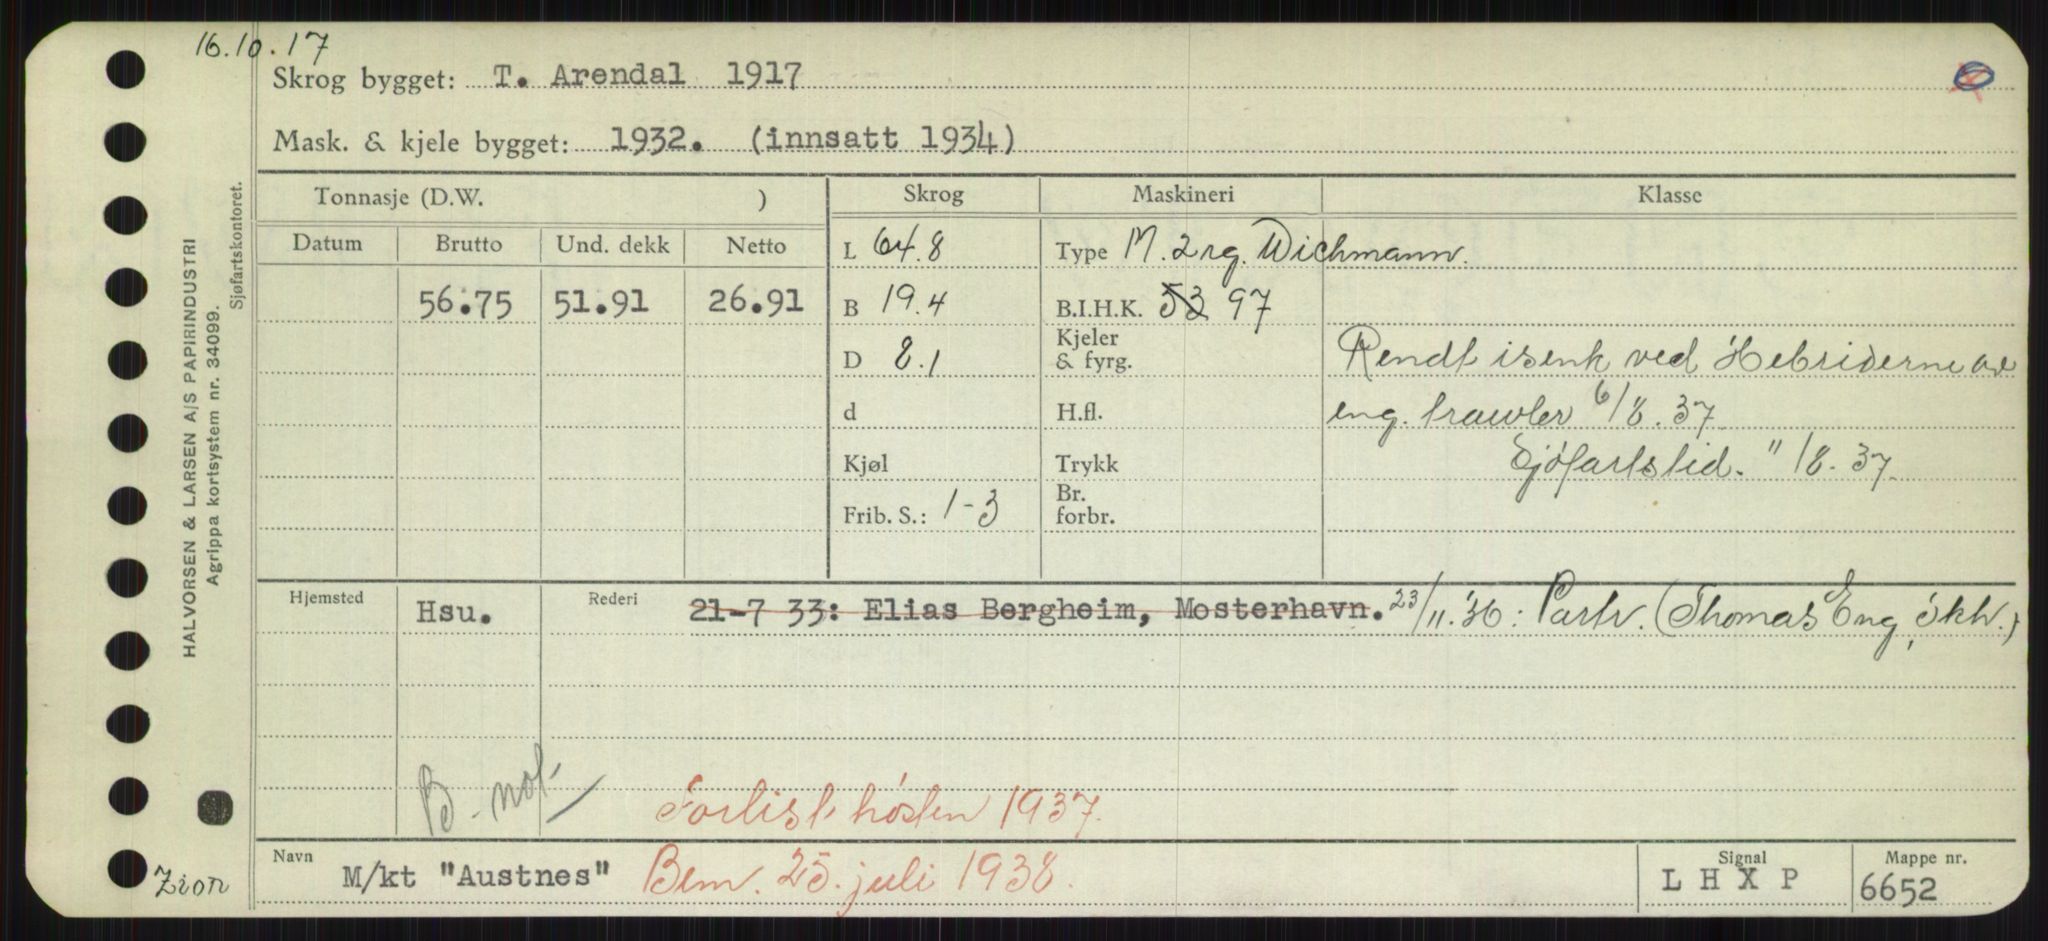 16.10.17
Skrog bygget: T. Arendal 1917
Mask. & kjele bygget: 1932. (innsatt 1934)
Tonnasje (D.W. ) Skrog Maskineri Klasse
Datum Brutto Und. dekk Netto
L 64.8 Type M. 2 rg. Wichmann.
56.75 51.91 26.91 B 19.4 B.I.H.K. 53 97
D 8.1 Kjeler & fyrg. Rendt isenk ved Hebriderne av
d H.fl. eng. trawler 6/8.37
Kjøl Trykk Sjöfartstid. 11/8.37
Frib. S.: 1-3 Br. forbr.
Hjemsted Hsu. Rederi 21-7 33: Elias Bergheim, Mosterhavn. 23/11.36: Partr. (Thomas Eng, Skh.)
B. not
Forlist hösten 1937.
Navn M/kt "Austnes" Bem. 25. juli 1938. Signal L H X P Mappe nr. 6652
Zion
HALVORSEN & LARSEN A/S PAPIRINDUSTRI
Agrippa kortsystem nr. 34099.
Sjøfartskontoret.